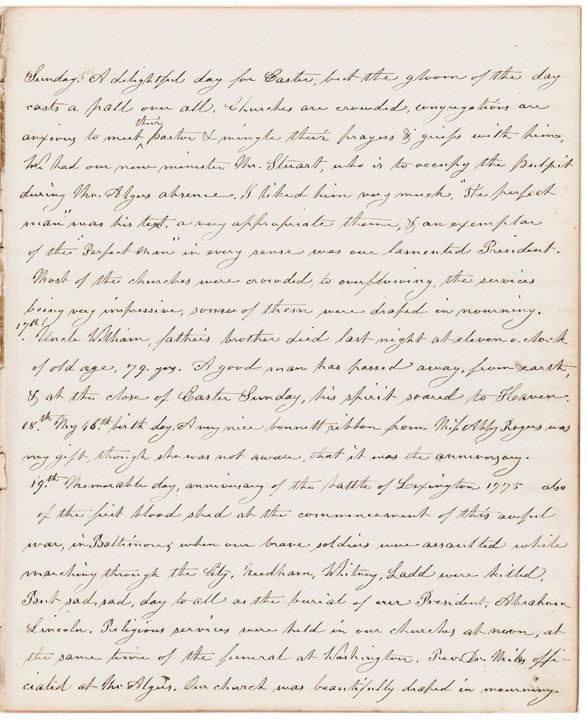 Sunday. A delightful day for Easter, but the gloom of the day
casts a pall over all. Churches are crowded, congregations are
anxious to meet their pastor & mingle their prayers & griefs with him,
We had our new minister Mr. Stuart, who is to occupy the Pulpit
during Mr. Algers absence. I liked him very much, "The perfect
man" was his text, a very appropriate theme, & an exemplar
of the "Perfect Man" in every sense was our lamented President.
Most of the churches were crowded, to overflowing, the services
being very impressive, some of them were draped in mourning.
17th. Uncle William, father's brother died last night at eleven o,clock
of old age, 79. yrs. A good man has passed away, from earth,
& at the close of Easter Sunday, his spirit soared to Heaven.
18.th My 46th birth day. A very nice bonnett ribbon from Miss Abby Rogers was
my gift, though she was not aware, that it was the anniversary.
19.th Memorable day, anniversary of the battle of Lexington 1775 also
of the first blood shed at the commencement of this awful
war, in Baltimore, when our brave soldiers were assaulted while
marching through the City, Needham, Whitney, Ladd were killed.
But sad, sad, day to all as the burial of our President, Abraham
Lincoln. Religious services were held in our churches at noon, at
the same time of the funeral at Washington. Rev Dr. Miles offi-
ciated at Mr Algers. Our church was beautifully draped in mourning.